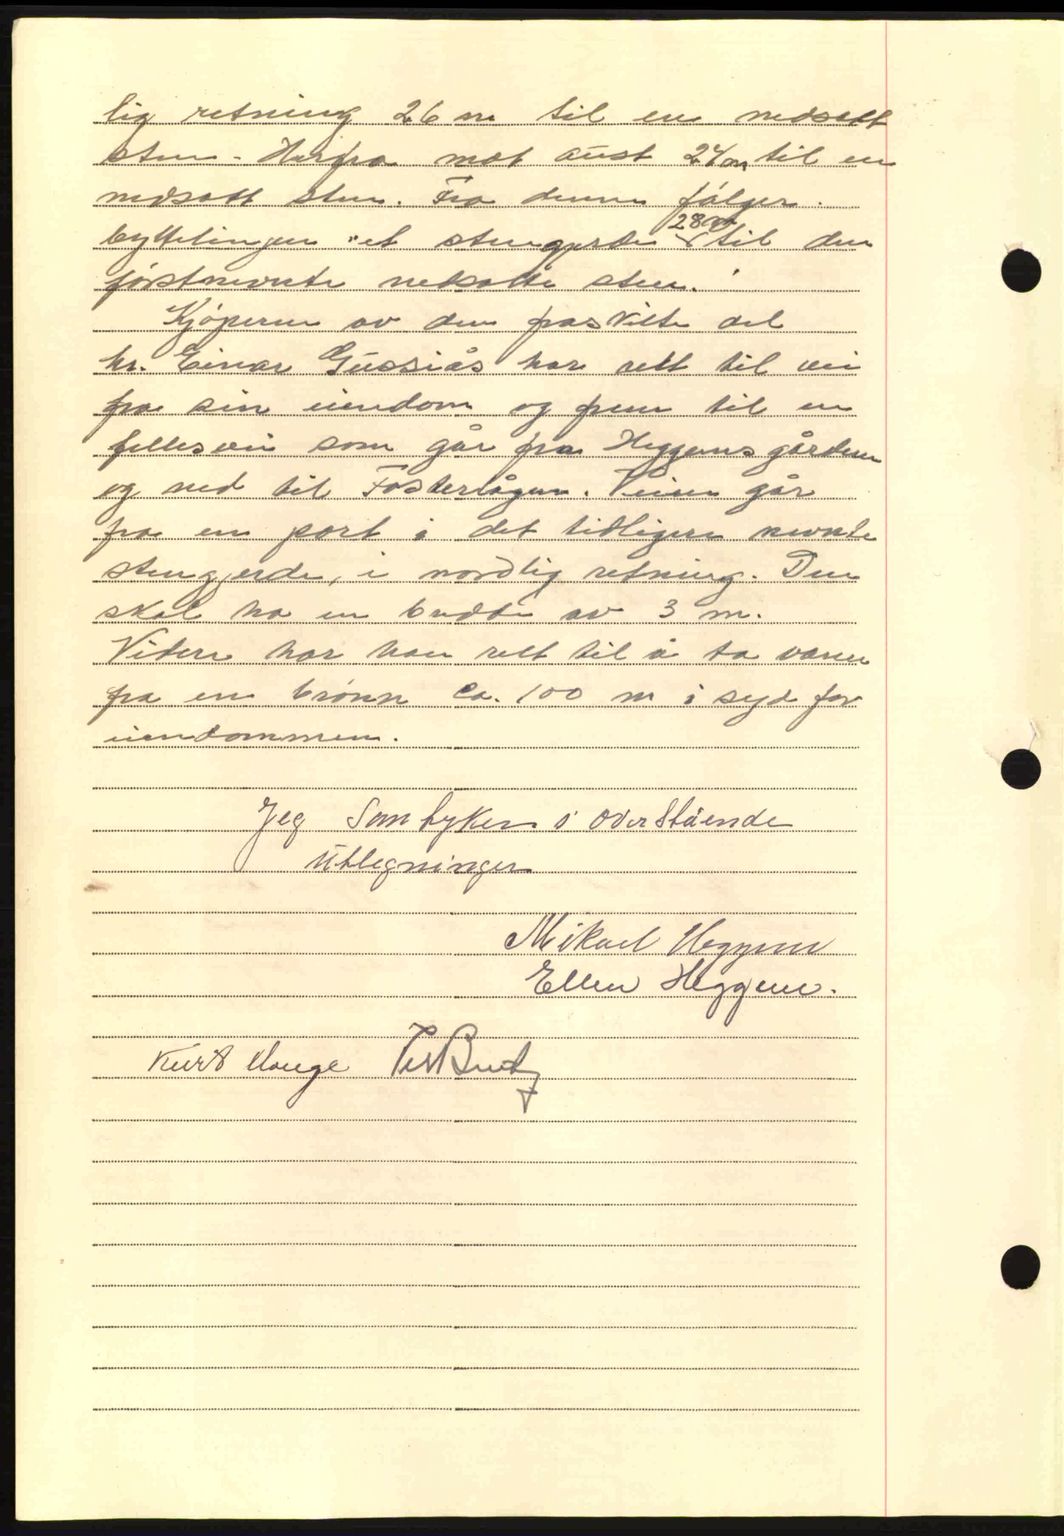 lig retning 26 m til en nedsatt
sten. Herfra mot aust 24 m til en
nedsatt sten. Fra denne følger
byttelinjen et stengjerde 28 m til den
førstnevnte nedsatte sten.
Kjøperen av den fraskilte del
hr. Einar Gussiås har rett til vei
fra sin eiendom og frem til en
fellesvei som går fra Heggemsgården
og ned til Fostervågen. Veien går
fra en port i det tidligere nevnte
stengjerde, i nordlig retning. Den
skal ha en bredde av 3 m.
Videre har han rett til å ta vann
fra en brønn ca. 100 m i syd for
eiendommen.
Jeg Samtyker i overstående
Utlegninger
Mikael Heggem
Ellen Heggem.
Kurt Hauge